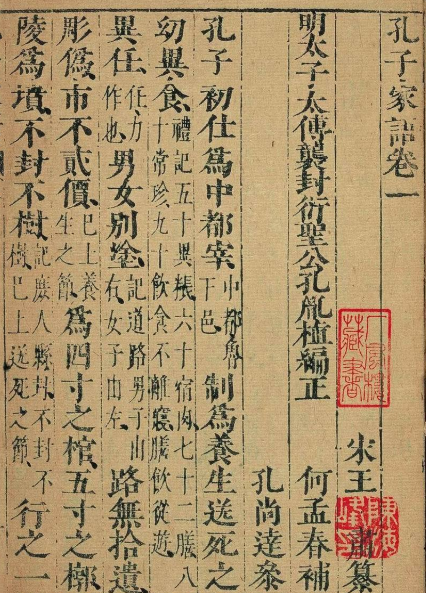 孔子家語卷一
宋王肅纂
明太子太傅襲封衍聖公孔胤植編正 何孟春補
孔尚達參
孔子初仕爲中都宰中都魯下邑制爲養生送死之
幼異食禮記五十異粻六十宿肉七十二膳八十常珍九十飲食不離寢膳飲從遊
異任任力作也男女別塗記道路男子由右女子由左路無拾遺
彫僞市不貳價已上養生之節爲四寸之棺五寸之槨
陵爲墳不封不樹記庶人縣封不封不樹已上送死之節行之一
藏書